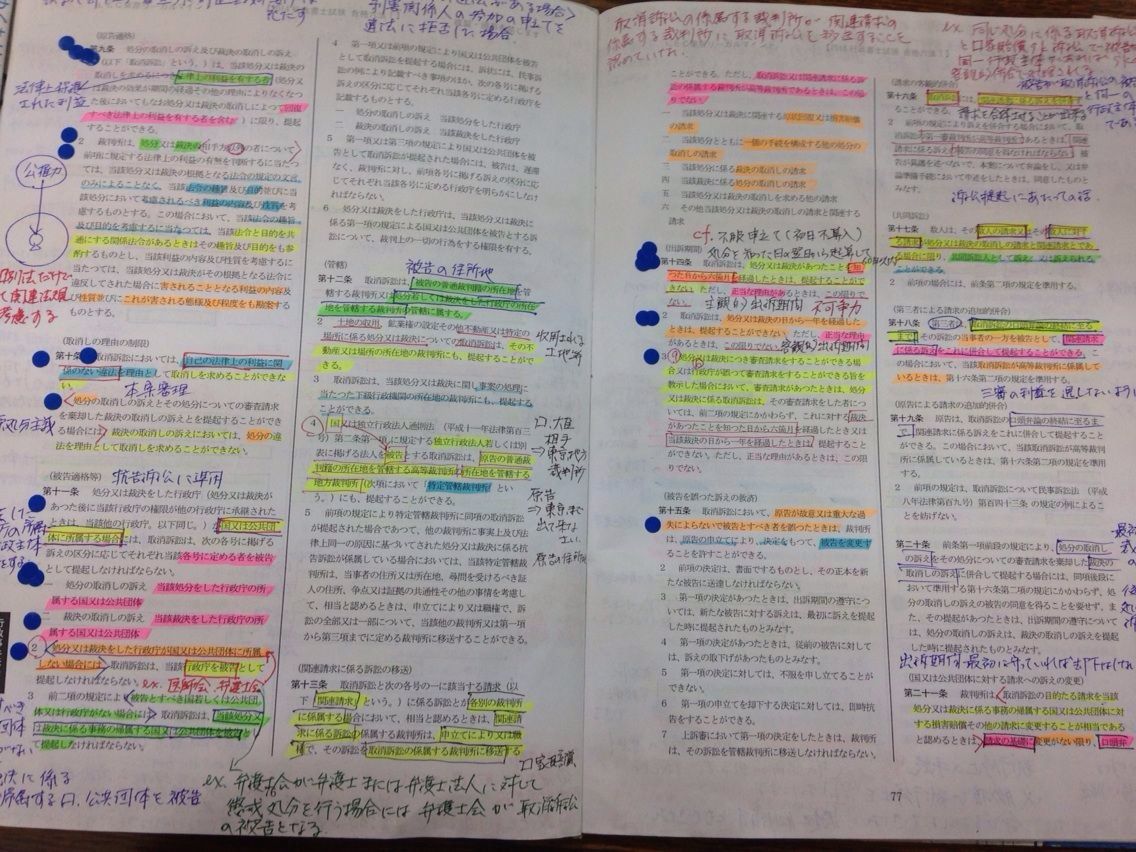 (原告適格)
第九条 処分の取消しの訴え及び裁決の取消しの訴え
(以下「取消訴訟」という。)は、当該処分又は裁決の
取消しを求めるにつき法律上の利益を有する者(処分又
は裁決の効果が期間の経過その他の理由によりなくなつ
た後においてもなお処分又は裁決の取消しによつて回復
すべき法律上の利益を有する者を含む。)に限り、提起
することができる。
2 裁判所は、処分又は裁決の相手方以外の者について
前項に規定する法律上の利益の有無を判断するに当たつ
ては、当該処分又は裁決の根拠となる法令の規定の文言
のみによることなく、当該法令の趣旨及び目的並びに当
該処分において考慮されるべき利益の内容及び性質を考
慮するものとする。この場合において、当該法令の趣旨
及び目的を考慮するに当たつては、当該法令と目的を共
通にする関係法令があるときはその趣旨及び目的をも参
酌するものとし、当該利益の内容及び性質を考慮するに
当たつては、当該処分又は裁決がその根拠となる法令に
違反してされた場合に害されることとなる利益の内容及
び性質並びにこれが害される態様及び程度をも勘案する
ものとする。
(取消しの理由の制限)
第十条 取消訴訟においては、自己の法律上の利益に関
係のない違法を理由として取消しを求めることができな
い。
本案審理
2 処分の取消しの訴えとその処分についての審査請求
を棄却した裁決の取消しの訴えとを提起することができ
る場合には、裁決の取消しの訴えにおいては、処分の違
法を理由として取消しを求めることができない。
(被告適格等)
抗告訴訟に準用
第十一条 処分又は裁決をした行政庁(処分又は裁決が
あつた後に当該行政庁の権限が他の行政庁に承継された
ときは、当該他の行政庁。以下同じ。)が国又は公共団
体に所属する場合には、取消訴訟は、次の各号に掲げる
訴えの区分に応じてそれぞれ当該各号に定める者を被告
として提起しなければならない。
一 処分の取消しの訴え 当該処分をした行政庁の所
属する国又は公共団体
二 裁決の取消しの訴え 当該裁決をした行政庁の所
属する国又は公共団体
2 処分又は裁決をした行政庁が国又は公共団体に所属
しない場合には、取消訴訟は、当該行政庁を被告として
提起しなければならない。
ex. 医師会、弁護士会
3 前二項の規定により被告とすべき国若しくは公共団
体又は行政庁がない場合には、取消訴訟は、当該処分又
は裁決に係る事務の帰属する国又は公共団体を被告とし
て提起しなければならない。
4 第一項又は前項の規定により国又は公共団体を被告
として取消訴訟を提起する場合には、訴状には、民事訴
訟の例により記載すべき事項のほか、次の各号に掲げる
訴えの区分に応じてそれぞれ当該各号に定める行政庁を
記載するものとする。
一 処分の取消しの訴え 当該処分をした行政庁
二 裁決の取消しの訴え 当該裁決をした行政庁
5 第一項又は第三項の規定により国又は公共団体を被
告として取消訴訟が提起された場合には、被告は、遅滞
なく、裁判所に対し、前項各号に掲げる訴えの区分に応
じてそれぞれ当該各号に定める行政庁を明らかにしなけ
ればならない。
6 処分又は裁決をした行政庁は、当該処分又は裁決に
係る第一項の規定による国又は公共団体を被告とする訴
訟について、裁判上の一切の行為をする権限を有する。
(管轄)
被告の住所地
第十二条 取消訴訟は、被告の普通裁判籍の所在地を管
轄する裁判所又は処分若しくは裁決をした行政庁の所在
地を管轄する裁判所の管轄に属する。
2 土地の収用、鉱業権の設定その他不動産又は特定の
場所に係る処分又は裁決についての取消訴訟は、その不
動産又は場所の所在地の裁判所にも、提起することがで
きる。
収用される
土地等
3 取消訴訟は、当該処分又は裁決に関し事案の処理に
当たつた下級行政機関の所在地の裁判所にも、提起する
ことができる。
4 国又は独立行政法人通則法(平成十一年法律第百三
号)第二条第一項に規定する独立行政法人若しくは別
表に掲げる法人を被告とする取消訴訟は、原告の普通裁
判籍の所在地を管轄する高等裁判所の所在地を管轄する
地方裁判所(次項において「特定管轄裁判所」とい
う。)にも、提起することができる。
5 前項の規定により特定管轄裁判所に同項の取消訴訟
が提起された場合であつて、他の裁判所に事実上及び法
律上同一の原因に基づいてされた処分又は裁決に係る抗
告訴訟が係属している場合においては、当該特定管轄裁
判所は、当事者の住所又は所在地、尋問を受けるべき証
人の住所、争点又は証拠の共通性その他の事情を考慮し
て、相当と認めるときは、申立てにより又は職権で、訴
訟の全部又は一部について、当該他の裁判所又は第一項
から第三項までに定める裁判所に移送することができる。
(関連請求に係る訴訟の移送)
第十三条 取消訴訟と次の各号の一に該当する請求(以
下「関連請求」という。)に係る訴訟とが各別の裁判所
に係属する場合において、相当と認めるときは、関連請
求に係る訴訟の係属する裁判所は、申立てにより又は職
権で、その訴訟を取消訴訟の係属する裁判所に移送する
ex. 弁護士会が弁護士または弁護士法人に対して
懲戒処分を行う場合には弁護士会が取消訴訟
の被告となる
取消訴訟の係属する裁判所が関連請求の
係属する裁判所に取消訴訟を移送することを
認めていない
ことができる。ただし、取消訴訟又は関連請求に係る訴
訟の係属する裁判所が高等裁判所であるときは、この限
りでない。
一 当該処分又は裁決に関連する原状回復又は損害賠償
の請求
二 当該処分とともに一個の手続を構成する他の処分の
取消しの請求
三 当該処分に係る裁決の取消しの請求
四 当該裁決に係る処分の取消しの請求
五 当該処分又は裁決の取消しを求める他の請求
六 その他当該処分又は裁決の取消しの請求と関連する
請求
cf. 不服申立て(初日不算入)
処分を知った日の翌日から起算して
(出訴期間)
第十四条 取消訴訟は、処分又は裁決があつたことを知
つた日から六箇月を経過したときは、提起することがで
きない。ただし、正当な理由があるときは、この限りで
ない。
主観的出訴期間 不可争力
2 取消訴訟は、処分又は裁決の日から一年を経過した
ときは、提起することができない。ただし、正当な理由
があるときは、この限りでない。
客観的出訴期間
3 処分又は裁決につき審査請求をすることができる場
合又は行政庁が誤つて審査請求をすることができる旨を
教示した場合において、審査請求があつたときは、処分
又は裁決に係る取消訴訟は、その審査請求をした者につ
いては、前二項の規定にかかわらず、これに対する裁決
があつたことを知つた日から六箇月を経過したとき又は
当該裁決の日から一年を経過したときは、提起すること
ができない。ただし、正当な理由があるときは、この限
りでない。
(被告を誤つた訴えの救済)
第十五条 取消訴訟において、原告が故意又は重大な過
失によらないで被告とすべき者を誤つたときは、裁判所
は、原告の申立てにより、決定をもつて、被告を変更す
ることを許すことができる。
2 前項の決定は、書面でするものとし、その正本を新
たな被告に送達しなければならない。
3 第一項の決定があつたときは、出訴期間の遵守につ
いては、新たな被告に対する訴えは、最初に訴えを提起
した時に提起されたものとみなす。
4 第一項の決定があつたときは、従前の被告に対して
は、訴えの取下げがあつたものとみなす。
5 第一項の決定に対しては、不服を申し立てることが
できない。
6 第一項の申立てを却下する決定に対しては、即時抗
告をすることができる。
7 上訴審において第一項の決定をしたときは、裁判所
は、その訴訟を管轄裁判所に移送しなければならない。
(請求の客観的併合)
第十六条 取消訴訟には、関連請求に係る訴えを併合す
ることができる。
2 前項の規定により訴えを併合する場合において、取
消訴訟の第一審裁判所が高等裁判所であるときは、関連
請求に係る訴えの被告の同意を得なければならない。被
告が異議を述べないで、本案について弁論をし、又は弁
論準備手続において申述をしたときは、同意したものと
みなす。
訴訟提起にあたっての話
(共同訴訟)
第十七条 数人は、その数人の請求又はその数人に対す
る請求が処分又は裁決の取消しの請求と関連請求とであ
る場合に限り、共同訴訟人として訴え、又は訴えられる
ことができる。
2 前項の場合には、前条第二項の規定を準用する。
(第三者による請求の追加的併合)
第十八条 第三者は、取消訴訟の口頭弁論の終結に至る
まで、その訴訟の当事者の一方を被告として、関連請求
に係る訴えをこれに併合して提起することができる。こ
の場合において、当該取消訴訟が高等裁判所に係属して
いるときは、第十六条第二項の規定を準用する。
三審の利益を
(原告による請求の追加的併合)
第十九条 原告は、取消訴訟の口頭弁論の終結に至るま
で、関連請求に係る訴えをこれに併合して提起すること
ができる。この場合において、当該取消訴訟が高等裁判
所に係属しているときは、第十六条第二項の規定を準用
する。
2 前項の規定は、取消訴訟について民事訴訟法(平成
八年法律第百九号)第百四十三条の規定の例によること
を妨げない。
第二十条 前条第一項前段の規定により、処分の取消し
の訴えをその処分についての審査請求を棄却した裁決の
取消しの訴えに併合して提起する場合には、同項後段に
おいて準用する第十六条第二項の規定にかかわらず、処
分の取消しの訴えの被告の同意を得ることを要せず、ま
た、その提起があつたときは、出訴期間の遵守について
は、処分の取消しの訴えは、裁決の取消しの訴えを提起
した時に提起されたものとみなす。
(国又は公共団体に対する請求への訴えの変更)
第二十一条 裁判所は、取消訴訟の目的たる請求を当該
処分又は裁決に係る事務の帰属する国又は公共団体に対
する損害賠償その他の請求に変更することが相当である
と認めるときは、請求の基礎に変更がない限り、口頭弁
77